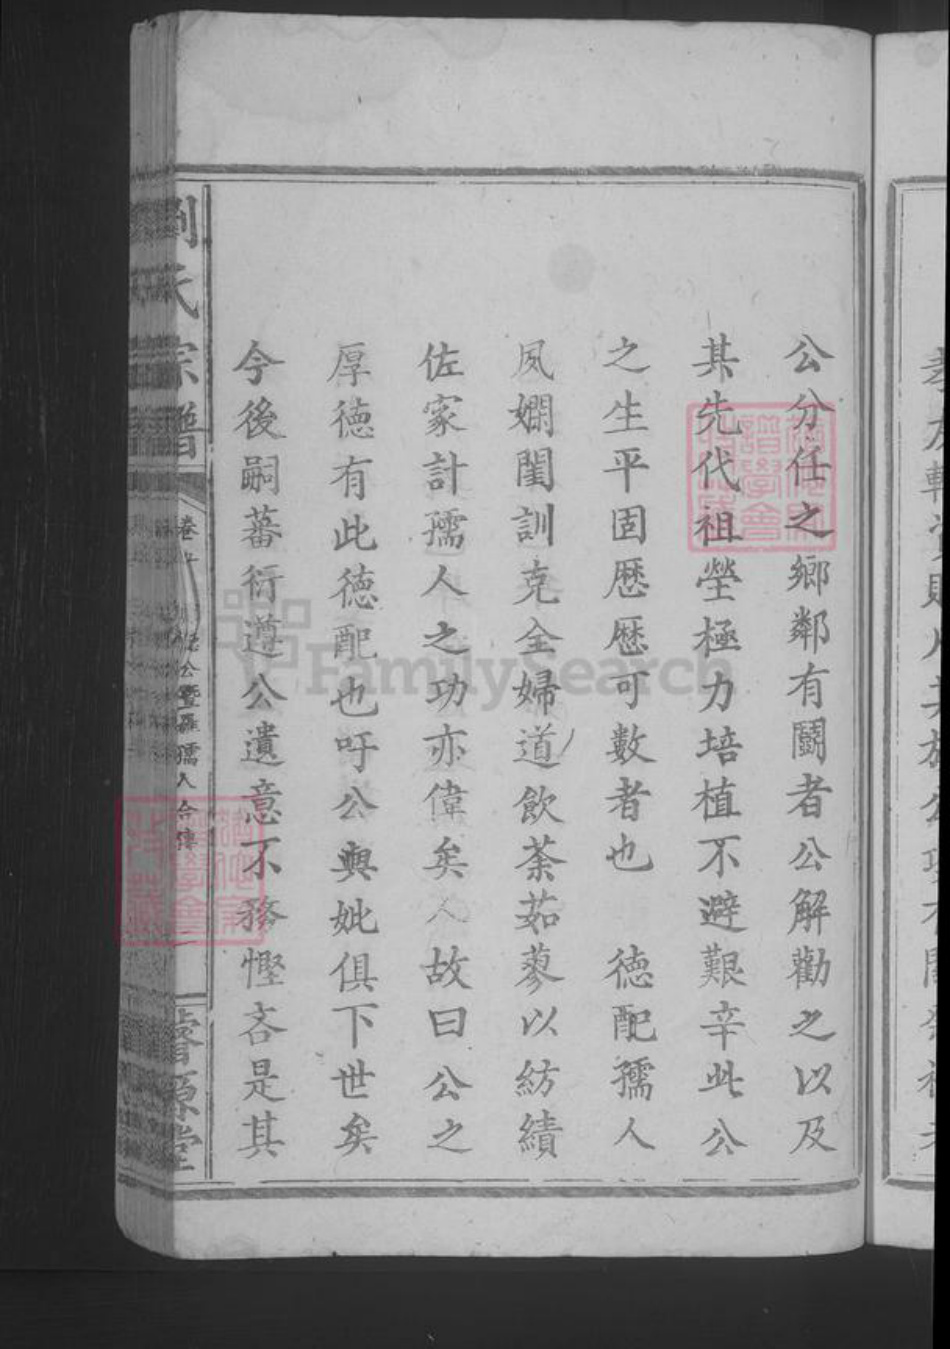 公分任之鄉鄰有鬭者公解勸之以及
其先代祖塋極力培植不避艱辛此公
之生平固歷歷可數者也　德配孺人
夙嫻閨訓克全婦道飲荼茹蓼以紡績
佐家計孺人之功亦偉矣故曰公之
厚德有此德配也吁公與妣俱下世矣
今後嗣蕃衍遵公遺意不務慳吝是其
劉氏宗譜
卷
公暨羅孺人合傳
睿源堂
FamilySearch